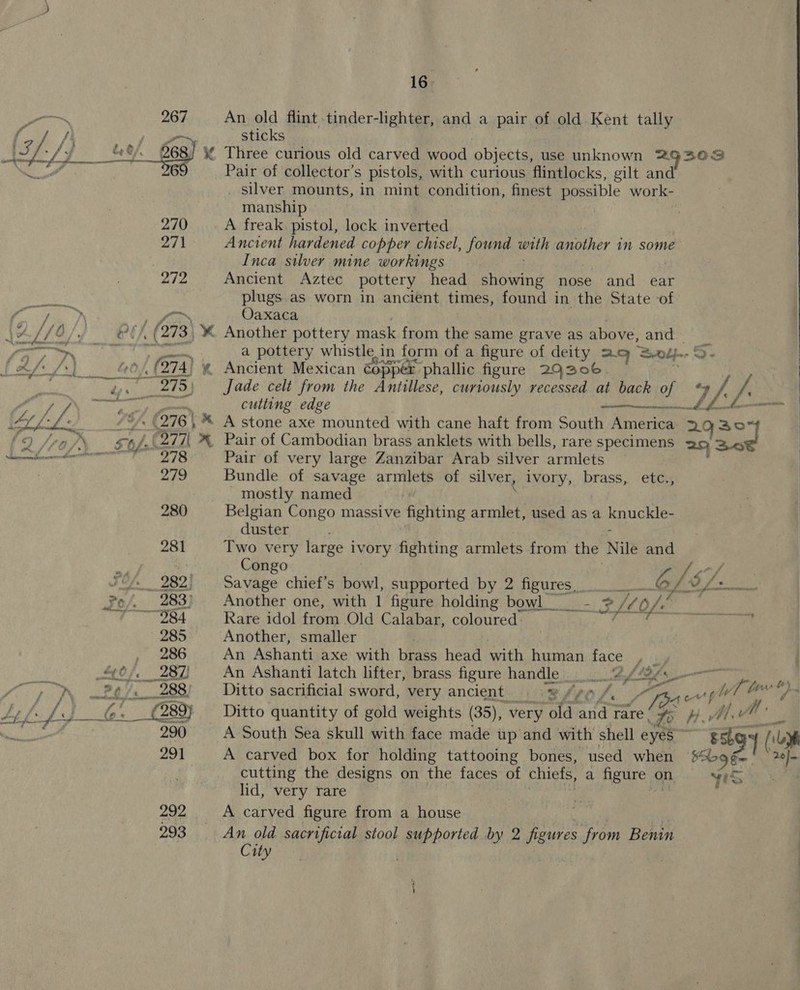 16
267 An old flint tinder-lighter, and a pair of old Kent tally
sticks
268 Three curious old carved wood objects, use unknown 29303
269 Pair of collector's pistols, with curious flintlocks, gilt and
silver mounts, in mint condition, finest possible work-
manship
270 A freak pistol, lock inverted
271 Ancient hardened copper chisel, found with another in some
Inca silver mine workings
272 Ancient Aztec pottery head showing nose and ear
plugs as worn in ancient times, found in the State of
Oaxaca
273 Another pottery mask from the same grave as above, and
a pottery whistle in form of a figure of deity
274 Ancient Mexican copper phallic figure 29306
275 Jade celt from the Antillese, curiously recessed at back of
cutting edge
276 A stone axe mounted with cane haft from South America 29307
277 Pair of Cambodian brass anklets with bells, rare specimens 29308
278 Pair of very large Zanzibar Arab silver armlets
279 Bundle of savage armlets of silver, ivory, brass, etc.,
mostly named
280 Belgian Congo massive fighting armlet, used as a knuckle-
duster
281 Two very large ivory fighting armlets from the Nile and
Congo
282 Savage chief's bowl, supported by 2 figures
283 Another one, with 1 figure holding bowl
284 Rare idol from Old Calabar, coloured
285 Another, smaller
286 An Ashanti axe with brass head with human face
287 An Ashanti latch lifter, brass figure handle
288 Ditto sacrificial sword, very ancient
289 Ditto quantity of gold weights (35), very old and rare
290 A South Sea skull with face made up and with shell eyes
291 A carved box for holding tattooing bones, used when
cutting the designs on the faces of chiefs, a figure on
lid, very rare
292 A carved figure from a house
293 An old sacrificial stool supported by 2 figures from Benin
City